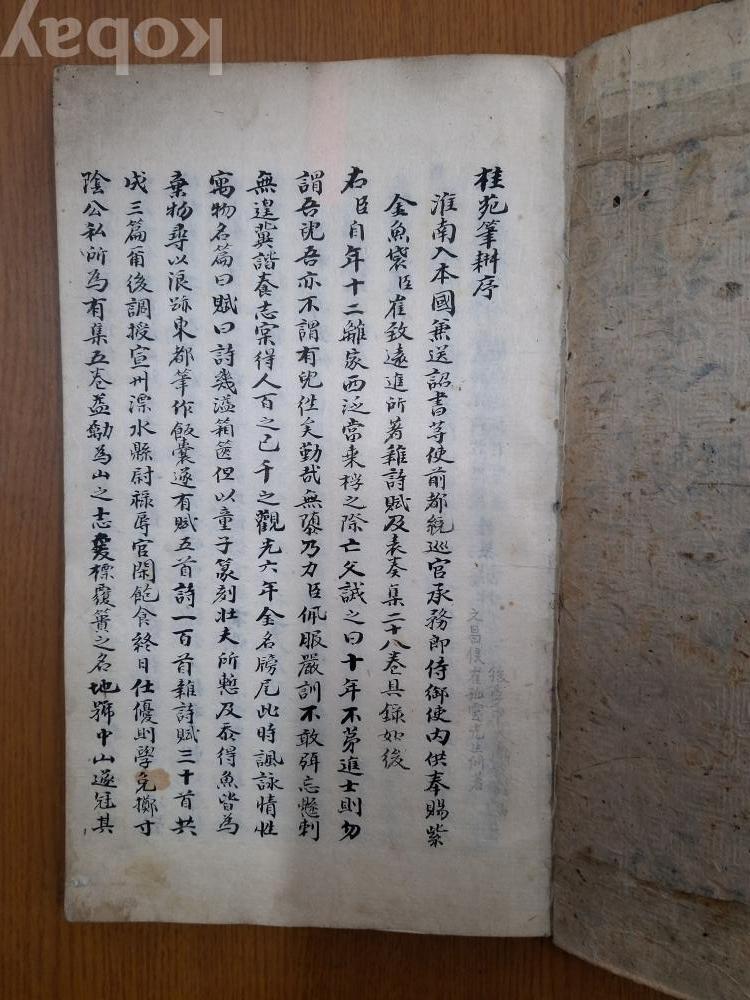 kobay
桂苑筆耕序
淮南入本國兼送詔書等使前都統巡官承務郎侍御使內供奉賜紫
金魚袋臣崔致遠進所著雜詩賦及表奏集二十八卷具錄如後
右臣自年十二離家西泛當乘桴之除亡父誡之曰十年不第進士則勿
謂吾兒吾亦不謂有兒徃矣勤哉無隳乃力臣佩服嚴訓不敢弭忘懸刺
無遑冀諧養志宲得人百之己千之觀光六年金名牓尾此時諷詠情性
寓物名篇曰賦曰詩幾溢箱篋但以童子篆刻壯夫所慙及忝得魚皆為
棄物尋以浪跡東都筆作飯囊遂有賦五首詩一百首雜詩賦三十首共
成三篇爾後調授宣州溧水縣尉祿厚官閑飽食終日仕優則學免擲寸
陰公私所為有集五卷益勵為山之志爰標覆簣之名地號中山遂冠其